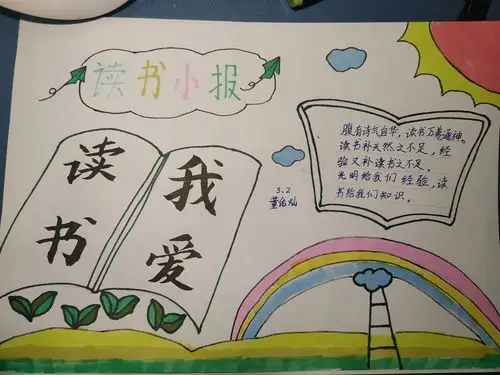 读书小报
我爱
读书
腹有诗气自华，读书万卷通神。
读书补天然之不足，经
验又补读书之不足。
光明给我们经验，读
书给我们知识。
3.2